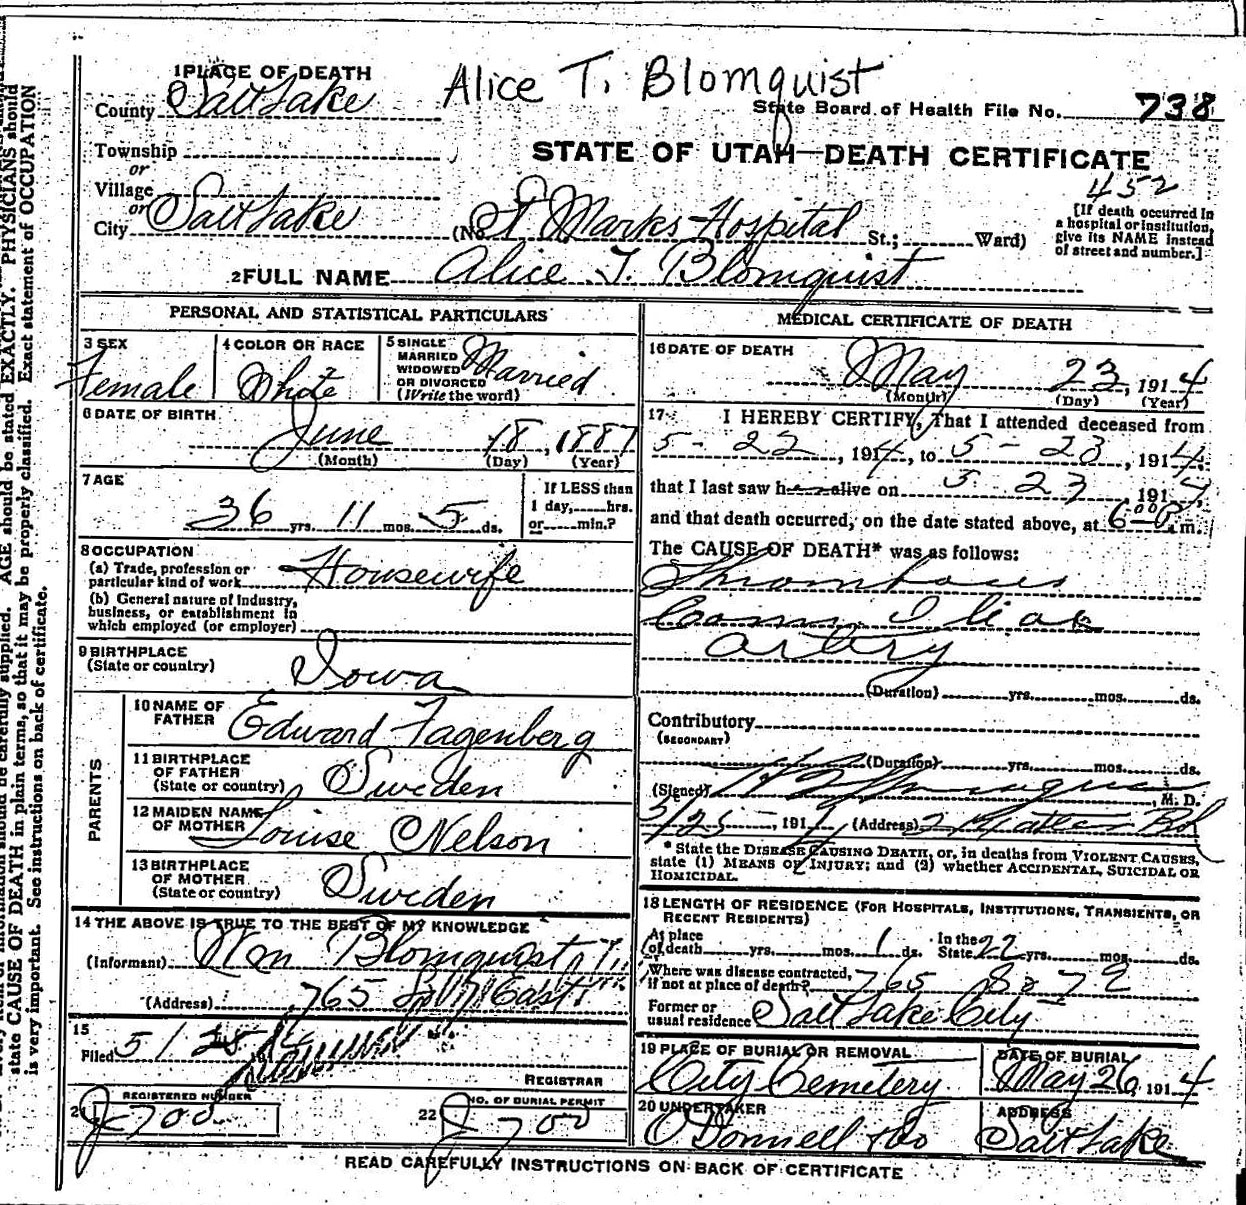 Alice T. Blomquist
1 PLACE OF DEATH
County Salt Lake
State Board of Health File No. 738
Township
or
Village
or
City Salt Lake
STATE OF UTAH—DEATH CERTIFICATE
452
(No. St Marks Hospital St.; Ward)
[If death occurred in
a hospital or institution,
give its NAME instead
of street and number.]
2 FULL NAME Alice T. Blomquist
PERSONAL AND STATISTICAL PARTICULARS
3 SEX
Female
4 COLOR OR RACE
White
5 SINGLE
MARRIED
WIDOWED
OR DIVORCED
(Write the word)
Married
6 DATE OF BIRTH
June 18, 1887
(Month) (Day) (Year)
7 AGE
36 yrs. 11 mos. 5 ds.
If LESS than
1 day, hrs.
or min.?
8 OCCUPATION
(a) Trade, profession or
particular kind of work Housewife
(b) General nature of industry,
business, or establishment in
which employed (or employer)
9 BIRTHPLACE
(State or country) Iowa
PARENTS
10 NAME OF
FATHER Edward Fagenberg
11 BIRTHPLACE
OF FATHER
(State or country) Sweden
12 MAIDEN NAME
OF MOTHER Louise Nelson
13 BIRTHPLACE
OF MOTHER
(State or country) Sweden
14 THE ABOVE IS TRUE TO THE BEST OF MY KNOWLEDGE
(Informant) Wm Blomquist
(Address) 765 East
15
Filed 5/25 191
REGISTRAR
21 REGISTERED NUMBER
J-700
22 NO. OF BURIAL PERMIT
J-700
MEDICAL CERTIFICATE OF DEATH
16 DATE OF DEATH
May 23, 1914
(Month) (Day) (Year)
17 I HEREBY CERTIFY, That I attended deceased from
5-22, 1914, to 5-23, 1914,
that I last saw her alive on 5 23, 1914,
and that death occurred, on the date stated above, at 6 m.
The CAUSE OF DEATH* was as follows:
Thrombous
Comm. Iliac
artery
(Duration) yrs. mos. ds.
Contributory
(SECONDARY)
(Duration) yrs. mos. ds.
(Signed) , M. D.
5/25, 191 (Address)
* State the DISEASE CAUSING DEATH, or, in deaths from VIOLENT CAUSES,
state (1) MEANS OF INJURY; and (2) whether ACCIDENTAL, SUICIDAL OR
HOMICIDAL.
18 LENGTH OF RESIDENCE (FOR HOSPITALS, INSTITUTIONS, TRANSIENTS, OR
RECENT RESIDENTS)
At place
of death yrs. mos. 1 ds. In the
State 22 yrs. mos. ds.
Where was disease contracted,
if not at place of death? 765 So 7 E
Former or
usual residence Salt Lake City
19 PLACE OF BURIAL OR REMOVAL
City Cemetery
DATE OF BURIAL
May 26, 1914
20 UNDERTAKER
O'Donnell & Co
ADDRESS
Salt Lake
READ CAREFULLY INSTRUCTIONS ON BACK OF CERTIFICATE
should be carefully supplied. AGE should be stated EXACTLY. PHYSICIANS should
state CAUSE OF DEATH in plain terms, so that it may be properly classified. Exact statement of OCCUPATION
is very important. See instructions on back of certificate.